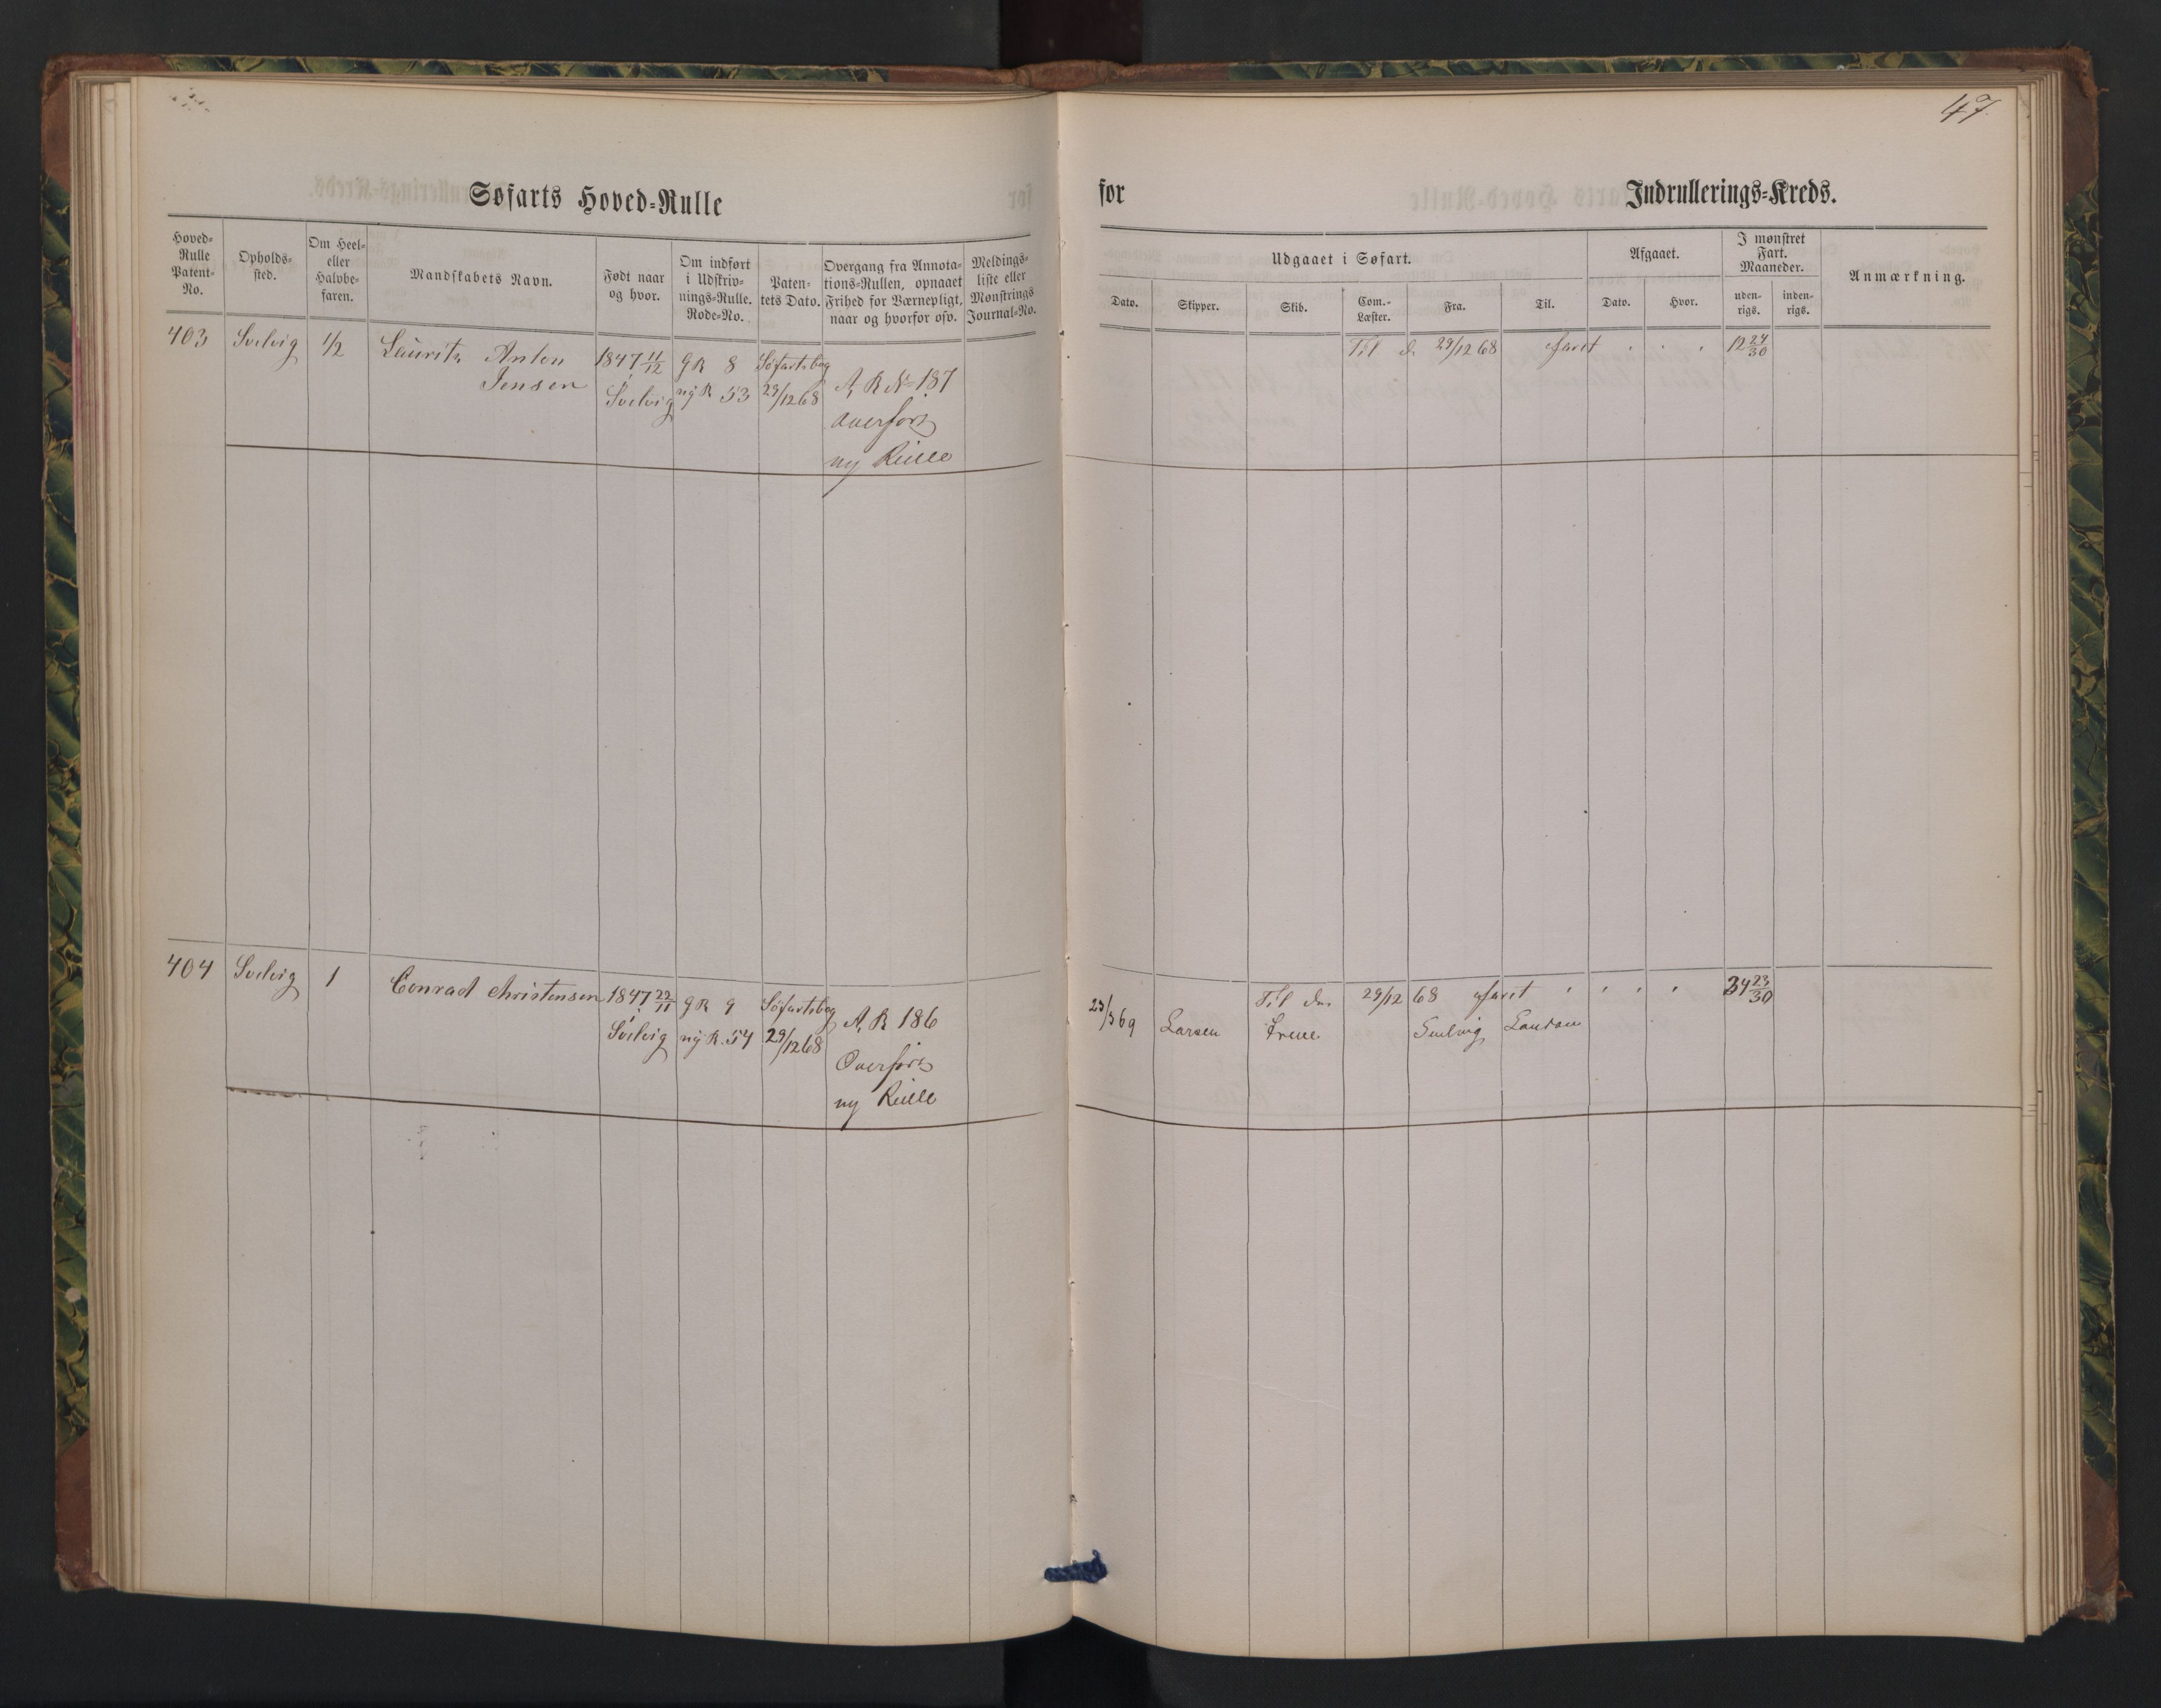 47
Søfarts Hoved-Rulle
for
Indrullerings-Kreds.
Hoved-
Rulle
Patent-
No.
Opholds-
sted.
Om Heel-
eller
Halvbe-
faren.
Mandskabets Navn.
Født naar
og hvor.
Om indført
i Udskriv-
nings-Rulle.
Rode-No.
Paten-
tets Dato.
Overgang fra Annota-
tions-Rullen, opnaaet
Frihed for Værnepligt,
naar og hvorfor osv.
Meldings-
liste eller
Mønstrings
Journal-No.
Udgaaet i Søfart.
Dato.
Skipper.
Skib.
Com.-
Læster.
Fra.
Til.
Afgaaet.
Dato.
Hvor.
I mønstret
Fart.
Maaneder.
uden-
rigs.
inden-
rigs.
Anmærkning.
403 Svelvig 1/2 Lauritz Anton 1847 11/12 gR 8 Søfartsbog
Jensen Svelvig ny R 53 29/12 68 A, R No 187
Overført
ny Rulle
Til d. 29/12 68 faret 12 24/30
404 Svelvig 1 Conrad Christensen 1847 22/11 gR 9 Søfartsbog A, R 186
Svelvig ny R. 54 29/12 68
Overført
ny Rulle
Til den 29/12 68 faret 34 23/30
23/3 69 Larsen Svelvig